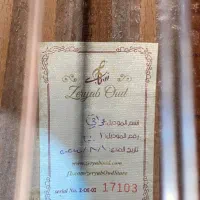 Zeryab Oud
اسم الموديل:
رقم الموديل: 1
تاريخ الصنع:
www.zeryaboud.com
fb.com/zeryabOudStore
serial No. Z-06-01 17103